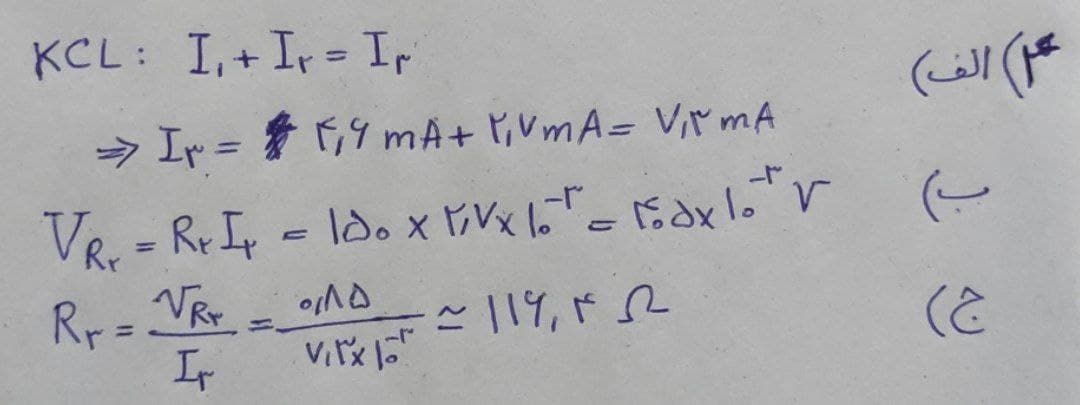 ۳) الف) KCL: I₁ + I۲ = I۳
⇒ I۳ = ۴,۶ mA + ۲,۷ mA = ۷,۳ mA
ب) V_R۲ = R۲ I۲ = ۱۵۰ × ۲,۷ × ۱۰^-۳ = ۴۰۵ × ۱۰^-۳ V
ج) R۳ = V_R۳ / I۳ = ۰,۸۵ / ۷,۳ × ۱۰^-۳ ≃ ۱۱۶,۴ Ω